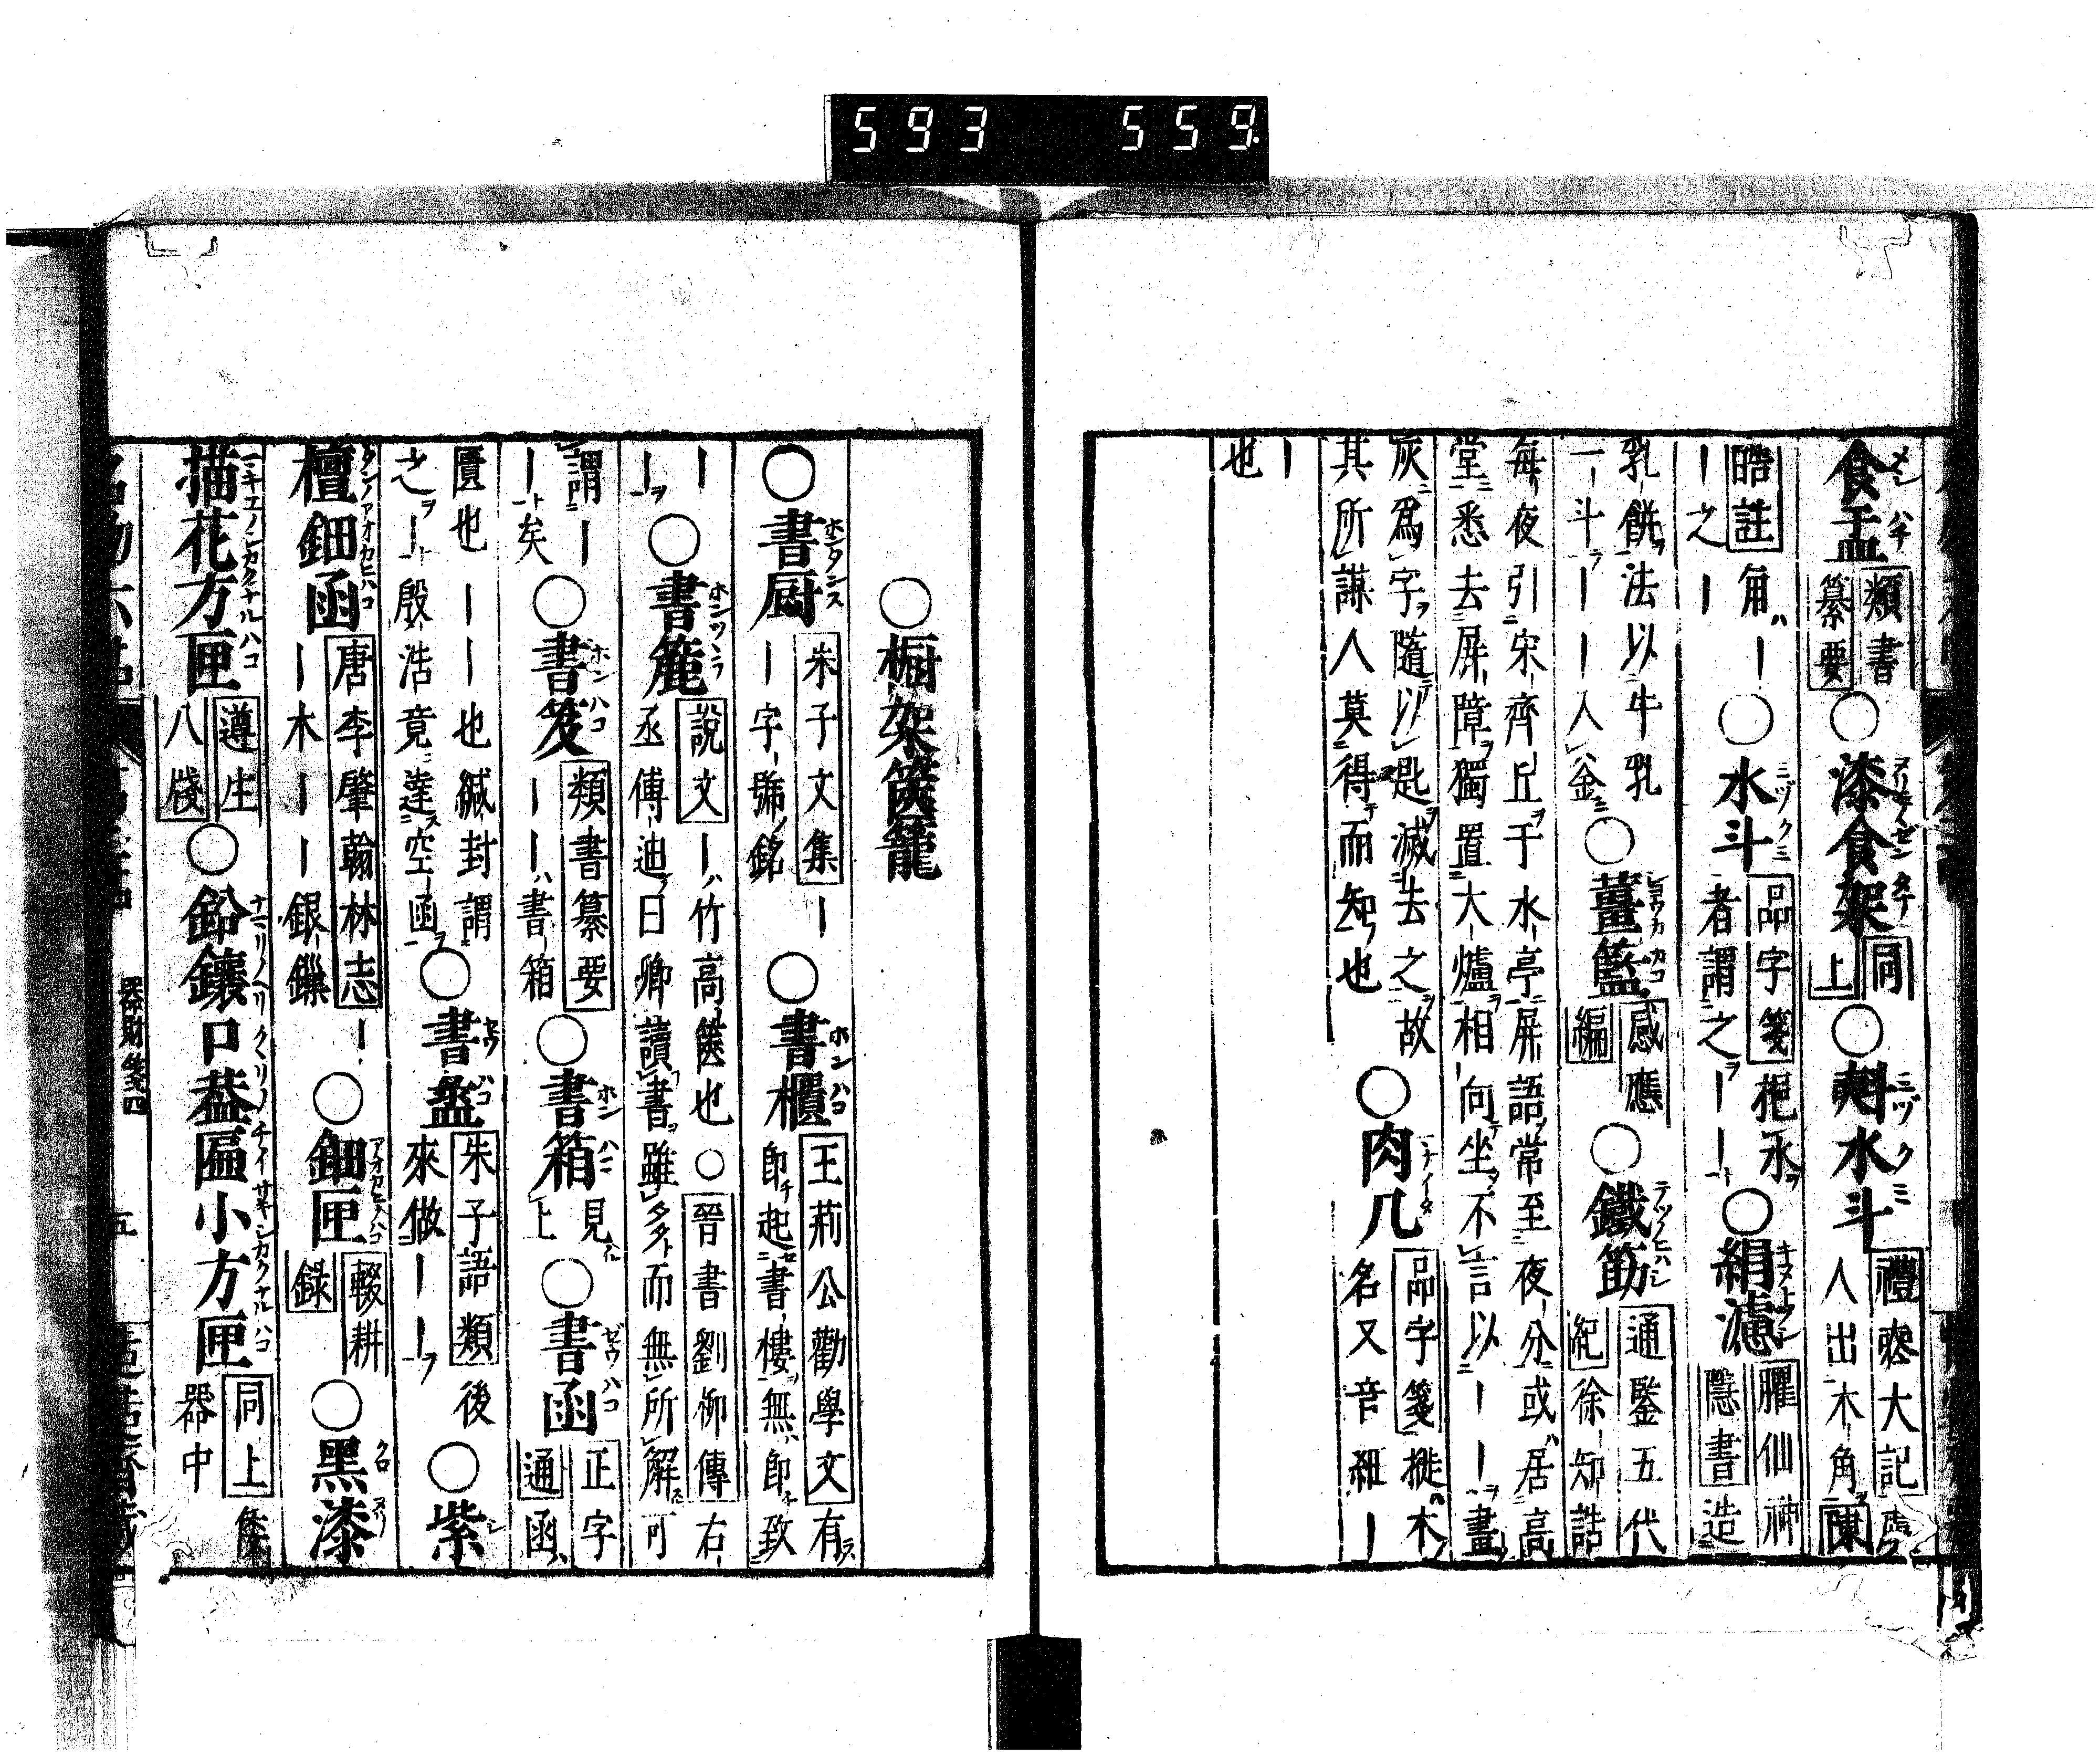 593 559
食盂 類書纂要 ○漆食架 同上 ○㪺水斗 禮喪大記 虞人出木角 陳
皓註 角ハ｜ ○水斗 品字箋 挹水
｜之｜者謂之｜｜ ○絹濾 臞仙神隱書 造
乳餅法以牛乳
一斗｜｜｜入釜 ○薑籃 感應編 ○鐵筯 通鑒五代紀 徐知誥
每夜引宋齊丘于水亭屏語常至夜分或居高
堂悉去屏障獨置大爐相向坐不言以｜｜畫
灰爲字隨以匙滅去之故
其所謀人莫得而知也 ○肉几 品字箋 椎木
名又音祖｜
｜
也
○橱架篋籠
○書厨 朱子文集 ｜
｜字號銘 ○書櫃 王荊公勸學文 有
即起書樓無即致
｜
｜ ○書簏 說文 ｜ハ竹高篋也 ○晉書劉柳傳 右
丞傅迪曰卿讀書雖多而無所解可
謂｜
｜矣 ○書笈 類書纂要
｜｜ハ書箱 ○書箱 見上 ○書函 正字通 函
匱也｜｜也緘封謂
之｜殷浩竟達空函 ○書盝 朱子語類 後
來做｜｜ ○紫
檀鈿函 唐李肇翰林志 ｜
｜木｜｜銀鏁 ○鈿匣 輟耕録 ○黑漆
描花方匣 遵生八牋 ○鉛鑲口葢匾小方匣 同上 倭
器中
名物六帖 器財箋四 五